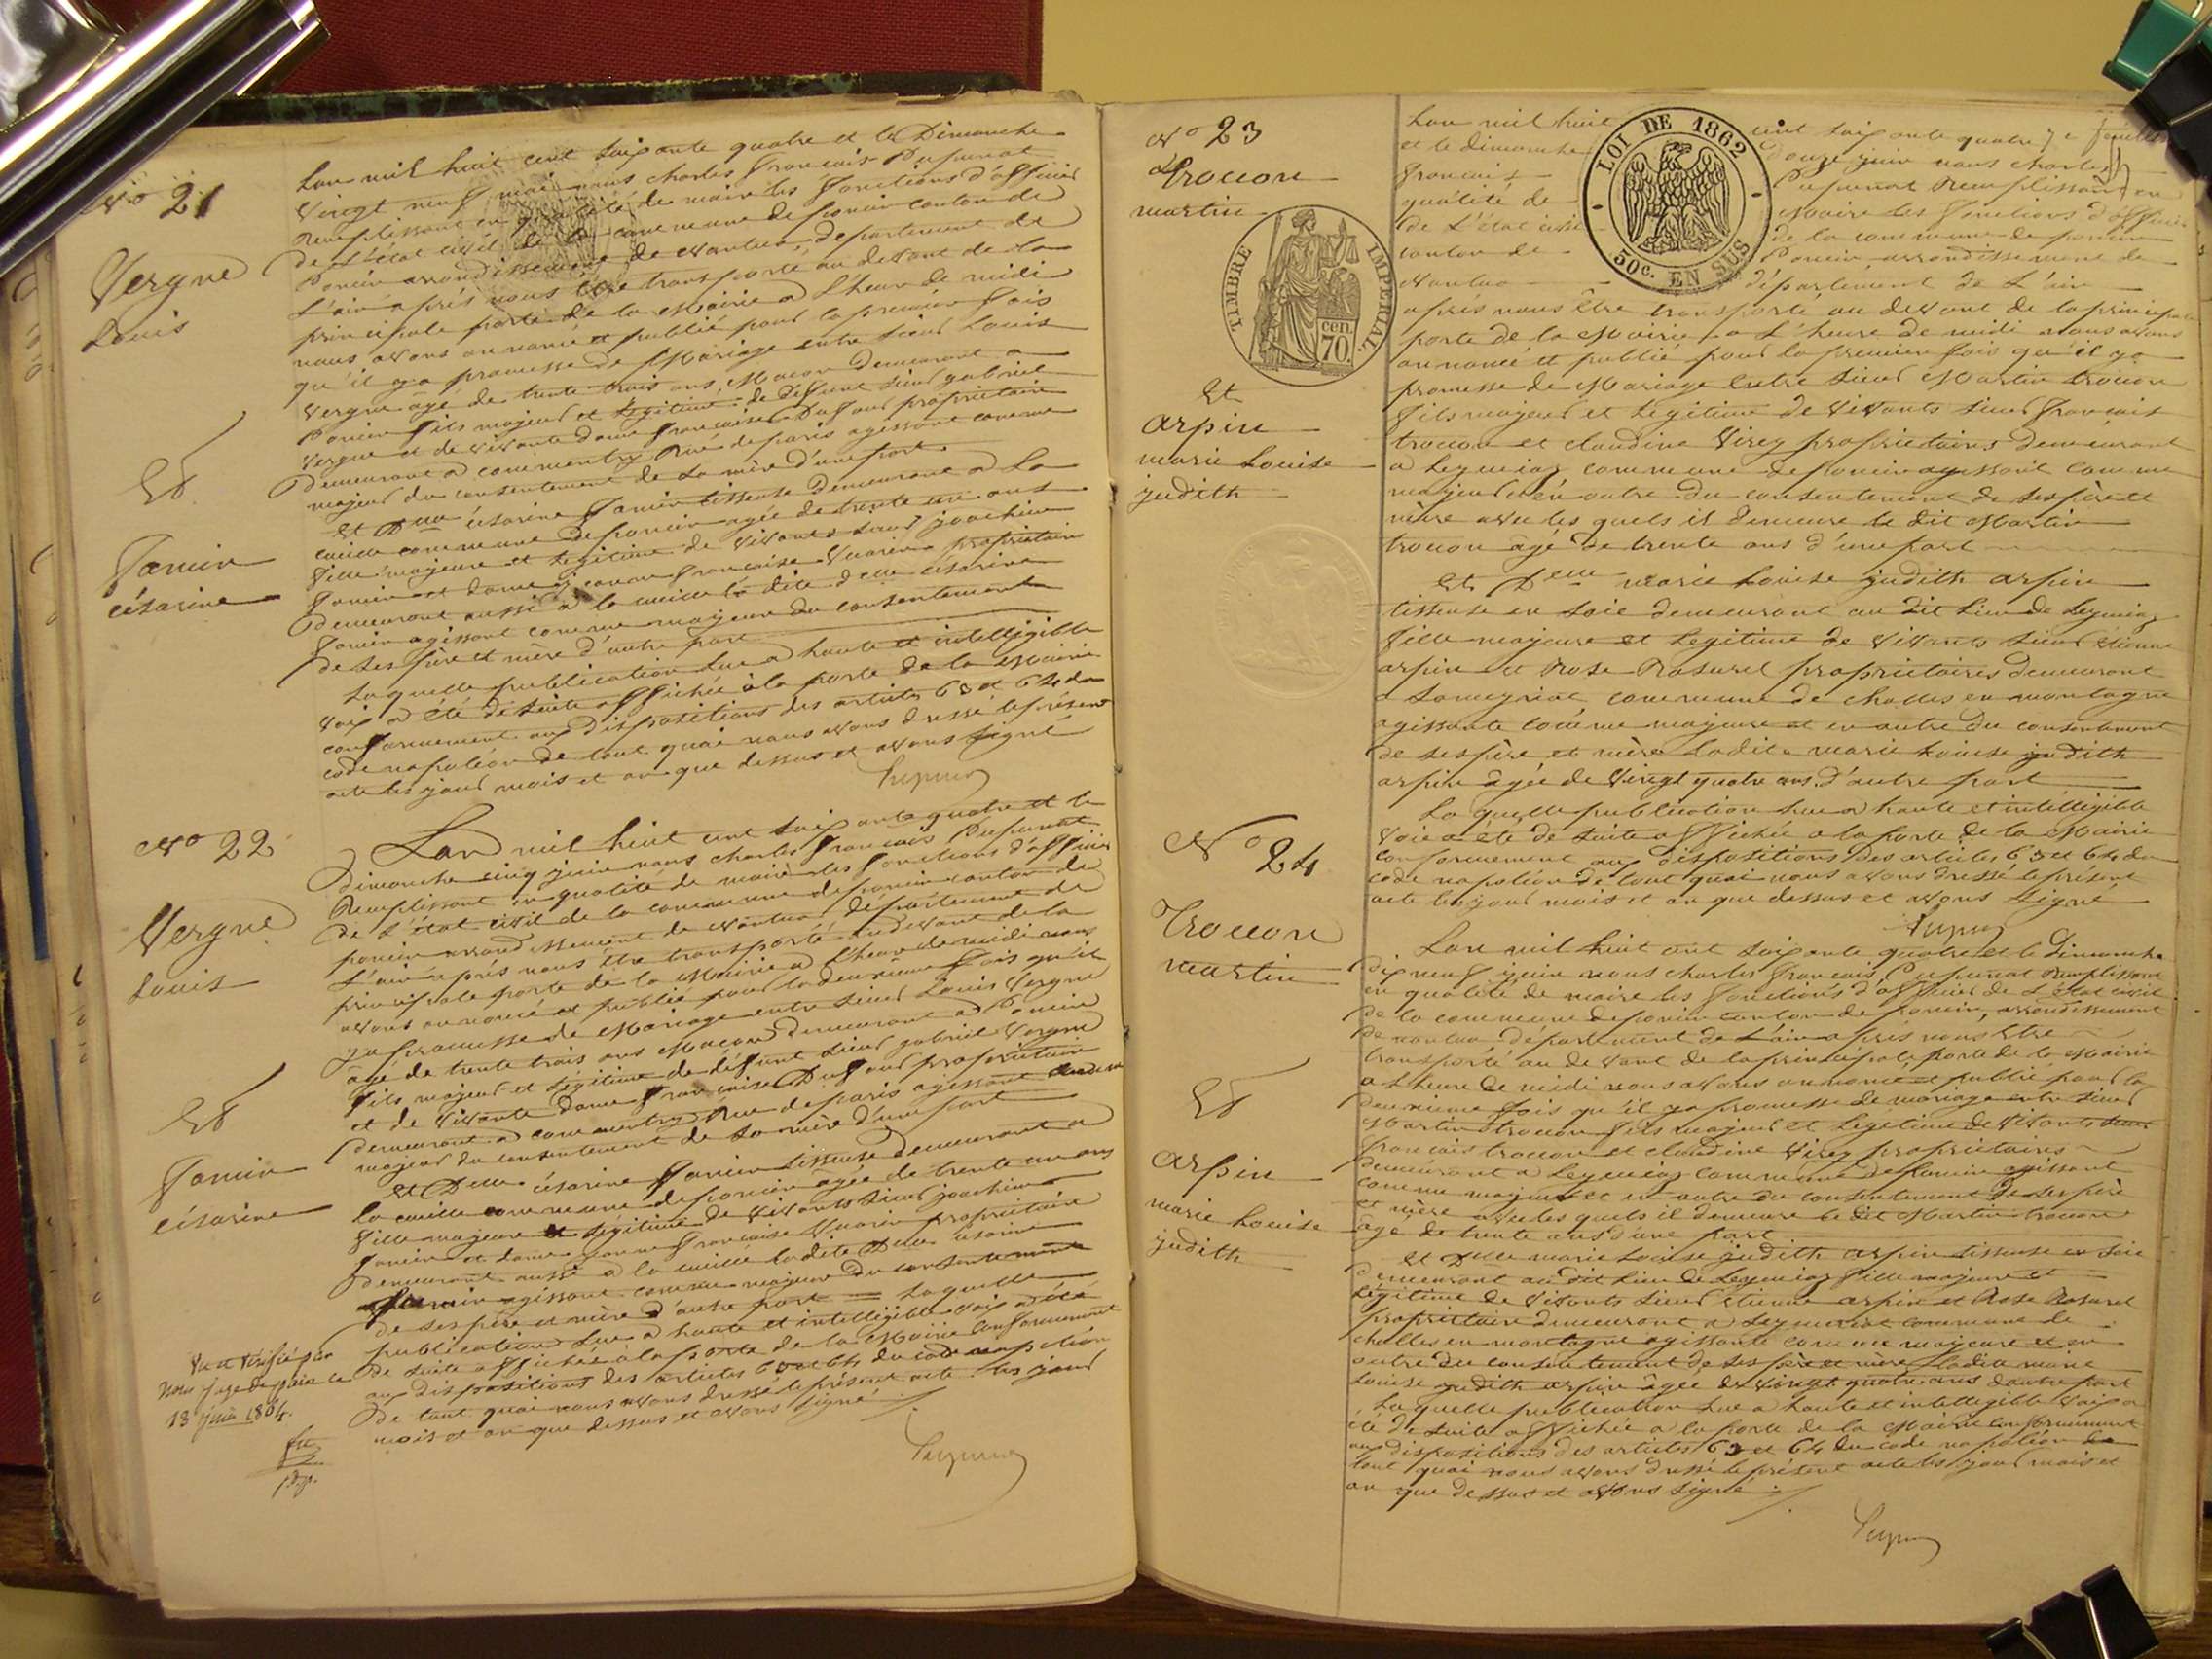 No 21
Vergne
Louis
Et
Jamin
césarine
Lan mil huit cent soixante quatre et le Dimanche
Vingt neuf mai nous charles francais Pupunat
Remplissant en qualité de maire les fonctions d'officier
de L'état civil de la commune de poncin canton de
Poncin arrondissement de Nantua, departement de
L'ain après nous être transporté au devant de la
principale porte de la Mairie a L'heure de midi
nous avons annoncé et publié pour la premier fois
qu'il y a promesse de Mariage entre sieur Louis
Vergne âgé de trente trois ans, Macon demeurant a
Poncin fils majeur et légitime de défunt sieur gabriel
Vergne et de Vivante dame francaise Dufour propriétaire
demeurant a commentry Rue de paris agissant comme
majeur du consentement de sa mère d'une part
Et Delle césarine Jamin tisseuse demeurant a La
cueille commune de poncin agée de trente un ans
fille majeure et légitime de Vivants sieur joachim
Jamin et dame jeanne francaise Vuarin propriétaire
demeurant aussi a la cueille la dite delle césarine
Jamin agissant comme majeure du consentement
de ses père et mère d'autre part
Laquelle publication Lue a haute et intelligible
Voix a été de suite affichée à la porte de la Mairie
conformement aux dispositions des articles 63 et 64 du
code napoléon de tout quoi nous avons dressé le présent
acte les jour mois et an que dessus et avons signé
No 22
Vergne
Louis
Et
Jamin
Césarine
Lan mil huit cent soixante quatre et le
Dimanche cinq juin nous charles francais Pupunat
Remplissant en qualité de maire les fonctions d'officier
de L'état civil de la commune de poncin canton de
poncin arrondissement de Nantua, département de
L'ain après nous être transporté au devant de la
principale porte de la Mairie a L'heure de midi nous
avons annoncé et publié pour la deuxieme fois qu'il
y a promesse de Mariage entre sieur Louis Vergne
âgé de trente trois ans Macon demeurant a Poncin
fils majeur et légitime de défunt sieur gabriel Vergne
et de Vivante dame francaise Dufour propriétaire
demeurant a commentry Rue de paris agissant comme
majeur du consentement de sa mère d'une part
Et Delle césarine Jamin tisseuse demeurant a
la cueille commune de poncin âgée de trente un ans
fille majeure et légitime de Vivants sieur joachim
Jamin et dame jeanne francaise Vuarin propriétaire
demeurant aussi a la cueille la dite Delle césarine
Jamin agissant comme majeur du consentement
de ses père et mère d'autre part = Laquelle
publication Lue a haute et intelligible voix a été
de suite affichée à la porte de la Mairie conformement
aux dispositions des articles 63 et 64 du code napoléon
de tout quoi nous avons dressé le présent acte les jour
mois et an que dessus et avons signé
Vu et Vérifié par
Nous juge de paix le
13 juin 1864.
No 23
Trocon
martin
TIMBRE IMPERIAL
70 cen.
Et
arpin
marie Louise
judith
LOI DE 1862
50c. EN SUS
Lan mil huit cent soixante quatre
et le dimanche douze juin nous charles
francais Pupunat Remplissant en
quálité de Maire les fonctions d'officier
de L'état civil de la commune de poncin
canton de Poncin arrondissement de
Nantua département de L'ain
après nous être transporté au devant de la principale
porte de la Mairie a L'heure de midi nous avons
annoncé et publié pour la premiere fois qu'il y a
promesse de Mariage entre sieur Martin trocon
fils majeur et légitime de Vivants sieur francais
trocon et claudine Virey propriétaires demeurant
a Leymiaz commune de poncin agissant comme
majeur et en outre du consentement de ses père et
mère avec les quels il demeure le dit Martin
trocon âgé de trente ans d'une part
Et Delle marie Louise judith arpin
tisseuse en soie demeurant au dit Lieu de Leymiaz
fille majeure et légitime de Vivants sieur étienne
arpin et Rose Rasurel propriétaires demeurant
a Lameyriat commune de challes en montagne
agissante comme majeure et en outre du consentement
de ses père et mère Ladite marie Louise judith
arpin âgée de Vingt quatre ans d'autre part
La quelle publication Lue a haute et intelligible
Voix a été de suite affichée a la porte de la Mairie
conformement aux dispositions des articles 63 et 64 du
code napoléon de tout quoi nous avons dressé le présent
acte les jour mois et an que dessus et avons signé
No 24
Trocon
martin
Et
arpin
marie Louise
judith
Lan mil huit cent soixante quatre et le Dimanche
dix neuf juin nous charles francais Pupunat Remplissant
en qualité de maire les fonctions d'officier de L'état civil
de la commune de poncin canton de poncin, arrondissement
de nantua département de L'ain après nous être
transporté au devant de la principale porte de la Mairie
a L'heure de midi nous avons annoncé et publié pour la
deuxieme fois qu'il y a promesse de mariage entre sieur
Martin trocon fils majeur et légitime de Vivants sieur
francais trocon et claudine Virey propriétaires
demeurant a Leymiaz commune de poncin agissant
comme majeur et en outre du consentement de ses père
et mère avec les quels il demeure le dit Martin trocon
âgé de trente ans d'une part
Et Delle marie Louise judith arpin tisseuse en soie
demeurant au dit Lieu de Leymiaz fille majeure et
légitime de Vivants sieur étienne arpin et Rose Rasurel
propriétaire demeurant a Leymeriat commune de
challes en montagne agissante comme majeure et en
outre du consentement de ses père et mère Ladite marie
Louise judith arpin âgée de Vingt quatre ans d'autre part
La quelle publication Lue a haute et intelligible Voix a
été de suite affichée a la porte de la Mairie conformement
aux dispositions des articles 63 et 64 du code napoléon de
tout quoi nous avons dressé le présent acte les jour mois et
an que dessus et avons signé